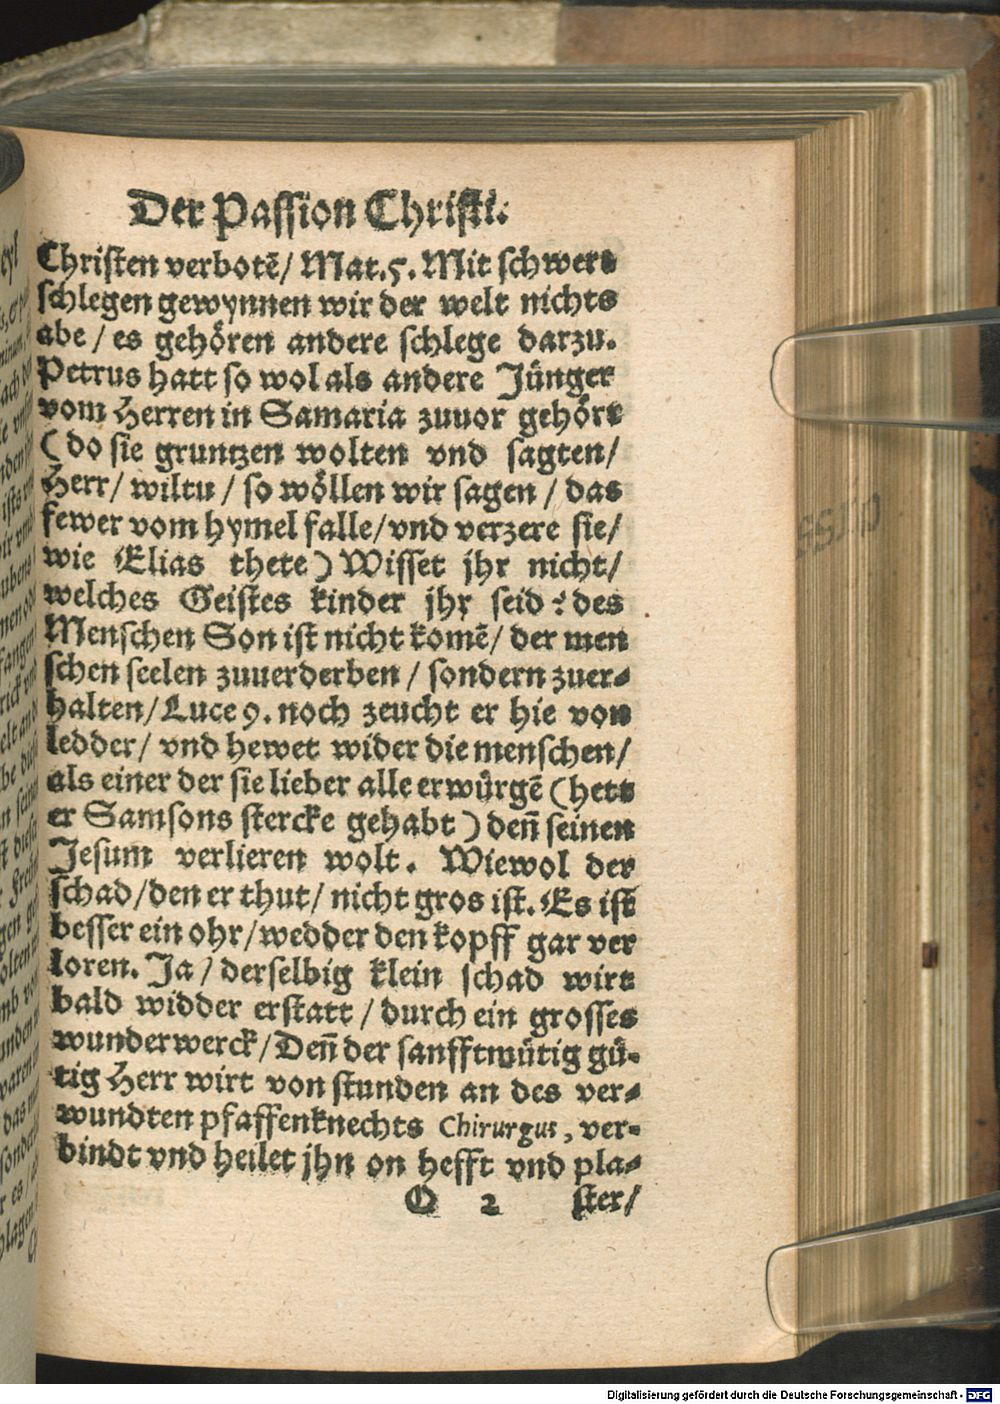 Der Passion Christi.
Christen verbotē/ Mat.5. Mit schwert
schlegen gewynnen wir der welt nichts
abe / es gehören andere schlege darzu.
Petrus hatt so wol als andere Jünger
vom Herren in Samaria zuuor gehört
( do sie gruntzen wolten vnd sagten/
Herr/ wiltu / so wöllen wir sagen / das
fewer vom hymel falle/ vnd verzere sie/
wie Elias thete ) Wisset jhr nicht/
welches Geistes kinder jhr seid ? des
Menschen Son ist nicht komē/ der men
schen seelen zuuerderben / sondern zuer-
halten/ Luce 9. noch zeucht er hie von
ledder/ vnd hewet wider die menschen/
als einer der sie lieber alle erwürgē (hett
er Samsons stercke gehabt ) deñ seinen
Jesum verlieren wolt. Wiewol der
schad/ den er thut/ nicht gros ist. Es ist
besser ein ohr/ wedder den kopff gar ver
loren. Ja / derselbig klein schad wirt
bald widder erstatt / durch ein grosses
wunderwerck/ Deñ der sanfftmütig gü-
tig Herr wirt von stunden an des ver-
wundten pfaffenknechts Chirurgus, ver-
bindt vnd heilet jhn on hefft vnd pla-
O 2 ster/
Digitalisierung gefördert durch die Deutsche Forschungsgemeinschaft - DFG